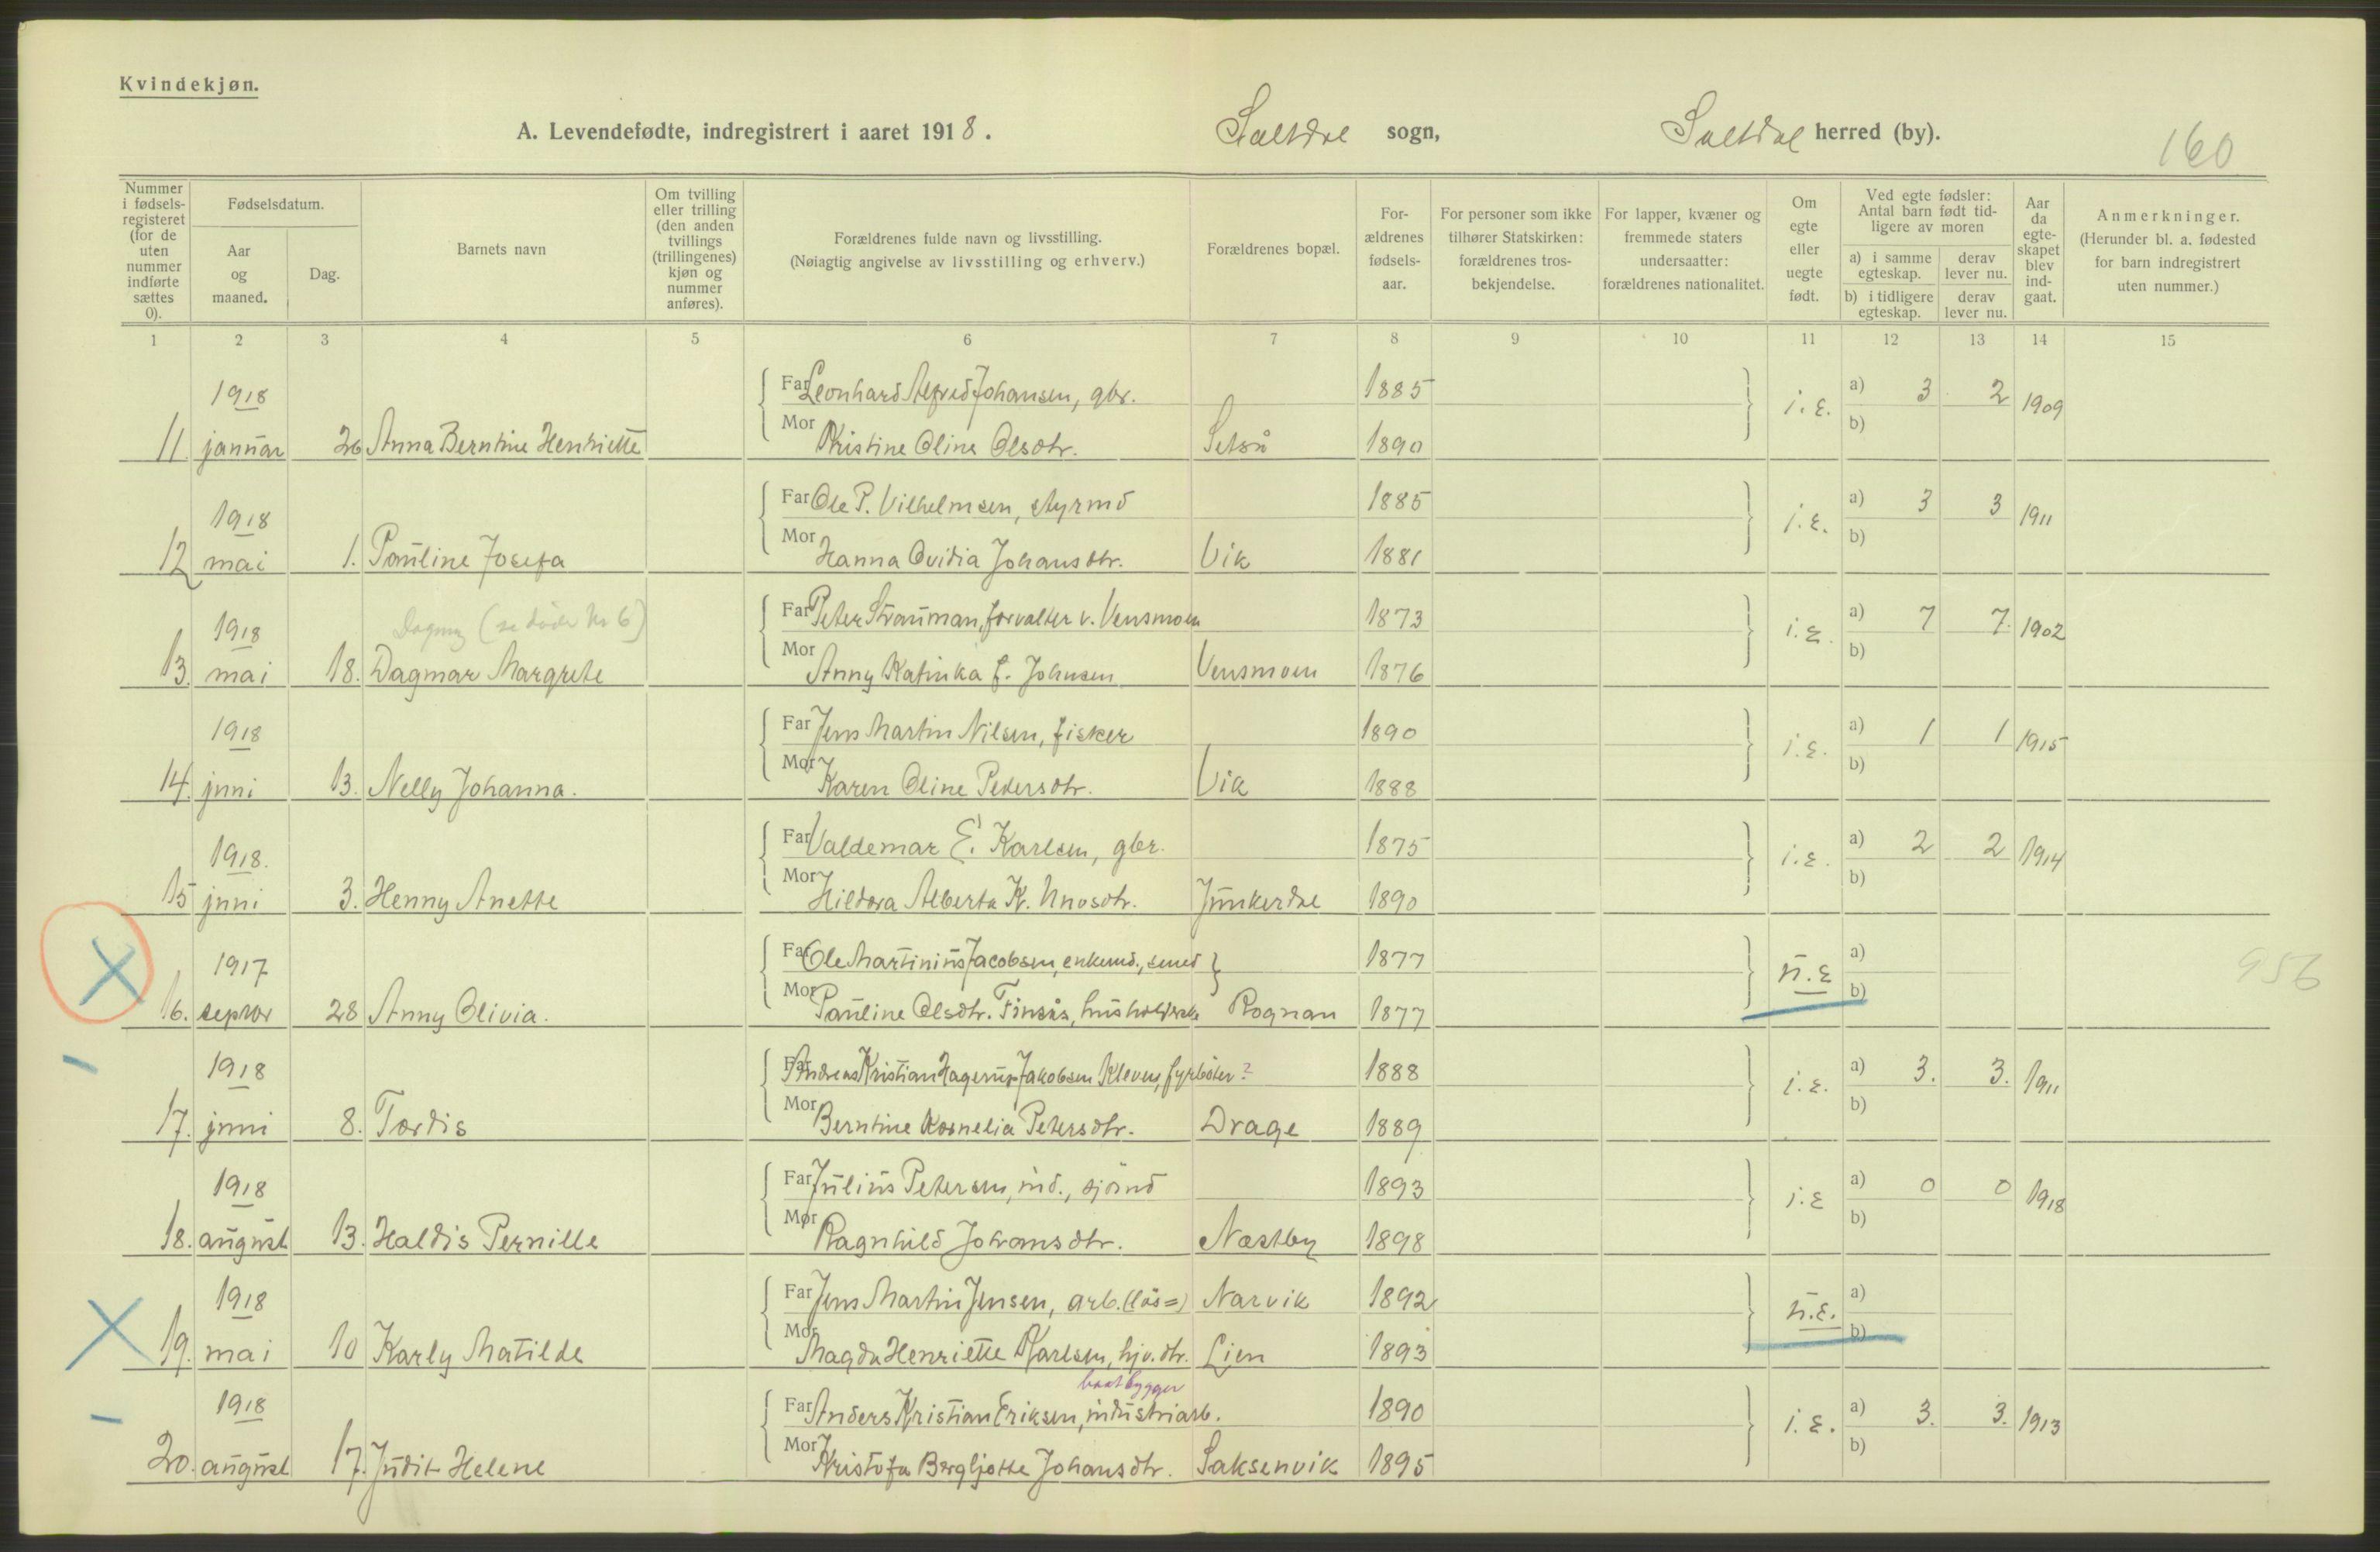 Kvindekjøn.
A. Levendefødte, indregistrert i aaret 1918. Saltdal sogn, Saltdal herred (by). 160
Nummer i fødselsregisteret (for de uten nummer indførte sættes 0).
Fødselsdatum.
Aar og maaned.
Dag.
Barnets navn
Om tvilling eller trilling (den anden tvillings (trillingenes) kjøn og nummer anføres).
Forældrenes fulde navn og livsstilling.
(Nøiagtig angivelse av livsstilling og erhverv.)
Forældrenes bopæl.
For-ældrenes fødsels-aar.
For personer som ikke tilhører Statskirken: forældrenes tros-bekjendelse.
For lapper, kvæner og fremmede staters undersaatter: forældrenes nationalitet.
Om egte eller uegte født.
Ved egte fødsler: Antal barn født tid-ligere av moren
a) i samme egteskap. derav lever nu.
b) i tidligere egteskap. derav lever nu.
Aar da egte-skapet blev ind-gaat.
Anmerkninger.
(Herunder bl. a. fødested for barn indregistrert uten nummer.)
1 2 3 4 5 6 7 8 9 10 11 12 13 14 15
1918 Far Leonhard Alfred Johansen, gbr. 1885 i.e. a) 3 2 1909
11. januar 26 Anna Berntine Henriette Mor Kristine Oline Olsdtr. Setså 1890 b)
1918 Far Ole P. Vilhelmsen, styrmd 1885 i.e. a) 3 3 1911
12 mai 1. Pauline Josefa Mor Hanna Ovidia Johansdtr. Vik 1881 b)
Dagny (se døde No 6)
1918 Far Peter Strauman, forvalter v. Vensmoen 1873 i.e. a) 7 7. 1902
13. mai 18. Dagmar Margrete Mor Anny Katinka f. Johnsen Vensmoen 1876 b)
1918 Far Jens Martin Nilsen, fisker 1890 i.e. a) 1 1 1915
14. juni 13. Nelly Johanna. Mor Karen Oline Pedersdtr. Vik 1888 b)
1918. Far Valdemar E. Karlsen, gbr. 1875 i.e. a) 2 2 1914
15 juni 3. Henny Anette Mor Hildora Alberta K. Junkerdal 1890 b)
1917 Far Ole Martinius Jacobsen, enkemd., smed 1877 u.e a) 956
16. septbr 28 Anny Olivia. Mor Pauline Olsdtr. Finsås, husholderske Rognan 1877 b)
1918 Far Andreas Kristian Hagerup Jakobsen Kleven, fyrbøter? 1888 i.e. a) 3. 3. 1911
17. juni 8. Tordis Mor Berntine Kornelia Petersdtr. Drage 1889 b)
1918 Far Julius Petersen, ind., sjömd 1893 i.e a) 0 0 1918
18. august 13. Haldis Pernille Mor Ragnhild Johansdtr. Næstby 1898 b)
1918 Far Jens Martin Jensen, arb. (løs=) Narvik 1892 u.e. a)
19. mai 10 Karly Matilde Mor Magda Henriette Karlsen, hjv. dtr. Lien 1893 b)
baatbygger
1918 Far Anders Kristian Eriksen, industriarb. 1890 i.e. a) 3. 3. 1913
20. august 17. Judit Helene Mor Kristofa Bergljotte Johansdtr. Saksenvik 1895 b)